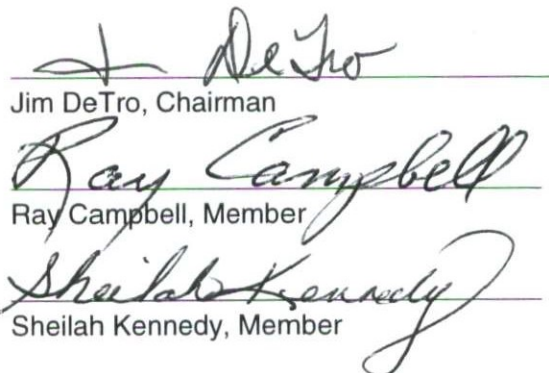 Jim DeTro
Jim DeTro, Chairman
Ray Campbell
Ray Campbell, Member
Sheilah Kennedy
Sheilah Kennedy, Member